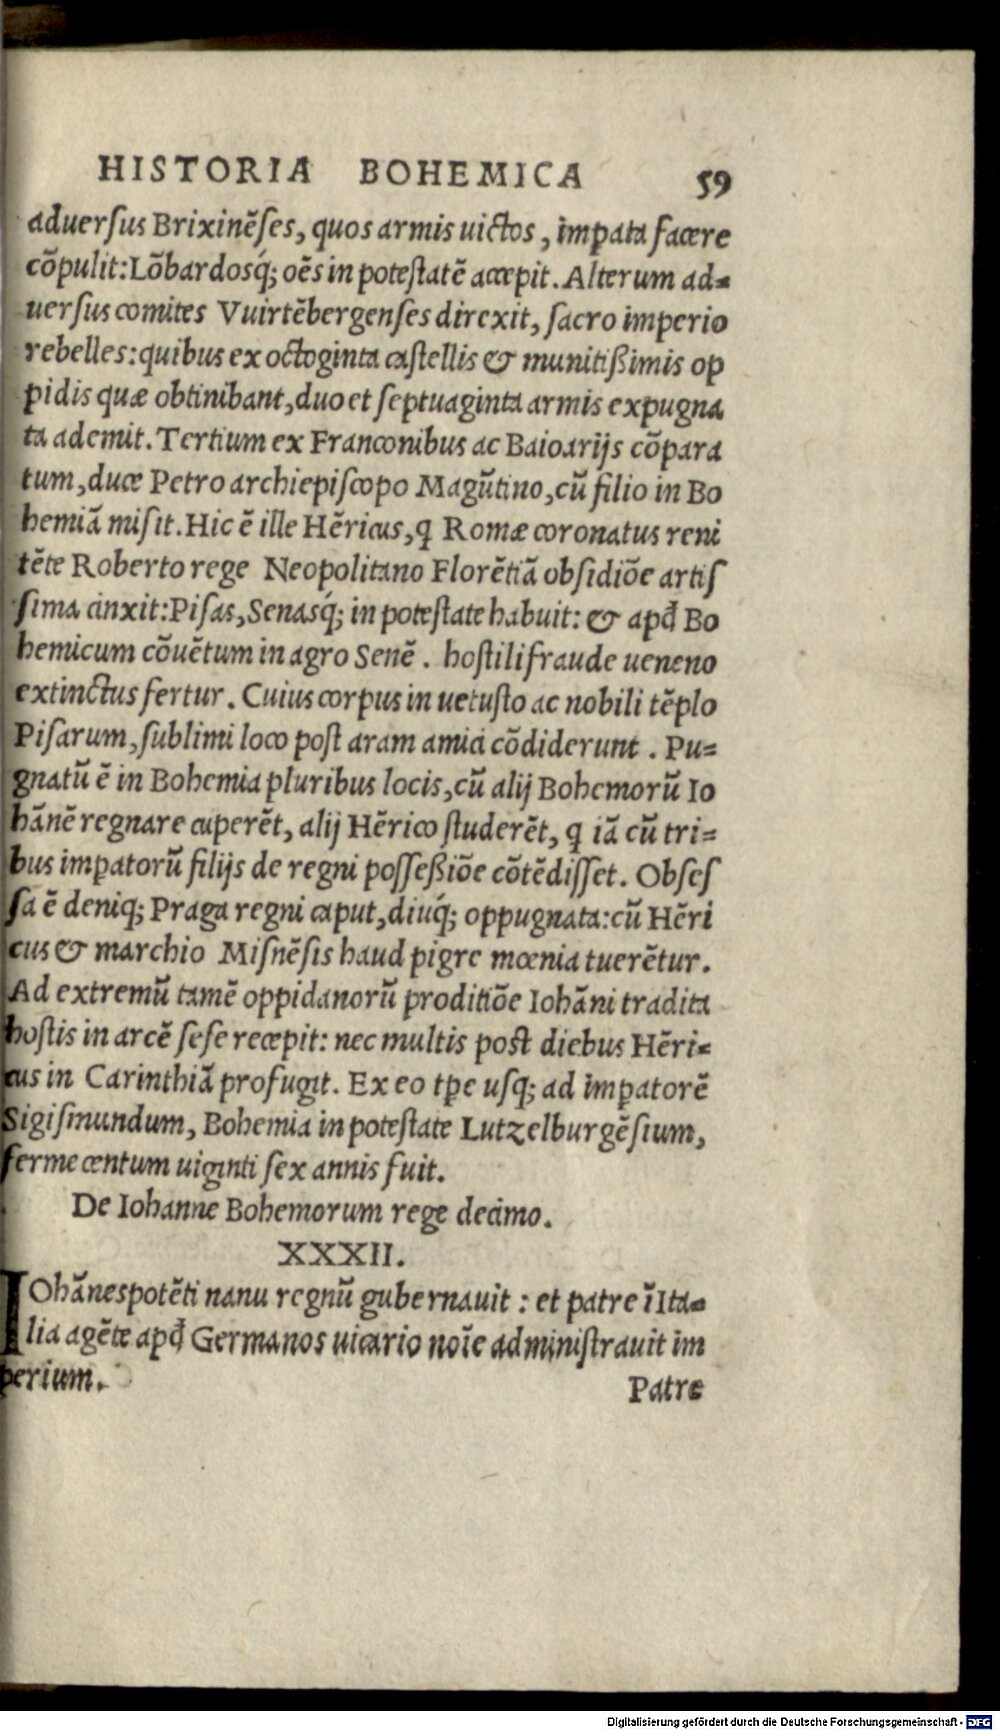 HISTORIA BOHEMICA 59
aduerſus Brixinēſes, quos armis uictos, imꝑata facere
cōpulit: Lōbardosq́; oēs in poteſtatē accepit. Alterum ad-
uerſus comites Vuirtēbergenſes direxit, ſacro imperio
rebelles: quibus ex octoginta caſtellis & munitißimis op
pidis quæ obtinibant, duo et ſeptuaginta armis expugna
ta ademit. Tertium ex Franconibus ac Baioarijs cōpara
tum, duce Petro archiepiſcopo Magūtino, cū filio in Bo
hemiā miſit. Hic ē ille Hēricus, q Romæ coronatus reni
tēte Roberto rege Neopolitano Florētiā obſidiōe artiſ
ſima cinxit: Piſas, Senasq́; in poteſtate habuit: & apđ Bo
hemicum cōuētum in agro Senē. hoſtili fraude ueneno
extinctus fertur. Cuius corpus in uetuſto ac nobili tēplo
Piſarum, ſublimi loco poſt aram amici cōdiderunt. Pu-
gnatū ē in Bohemia pluribus locis, cū alij Bohemorū Io
hānē regnare cuperēt, alij Hērico ſtuderēt, q iā cū tri-
bus imꝑatorū filijs de regni poſſeßiōe cōtēdiſſet. Obſeſ
ſa ē deniq; Praga regni caput, diuq́; oppugnata: cū Hēri
cus & marchio Miſnēſis haud pigre mœnia tuerētur.
Ad extremū tamē oppidanorū proditiōe Iohāni tradita
hoſtis in arcē ſeſe recepit: nec multis poſt diebus Hēri-
cus in Carinthiā profugit. Ex eo tꝑe uſq; ad imꝑatorē
Sigiſmundum, Bohemia in poteſtate Lutzelburgēſium,
ferme centum uiginti ſex annis fuit.
De Iohanne Bohemorum rege decimo.
XXXII.
IOhānes potēti nanu regnū gubernauit: et patre ī Ita-
lia agēte apđ Germanos uicario noīe adminiſtrauit im
perium. Patre
Digitalisierung gefördert durch die Deutsche Forschungsgemeinschaft - DFG